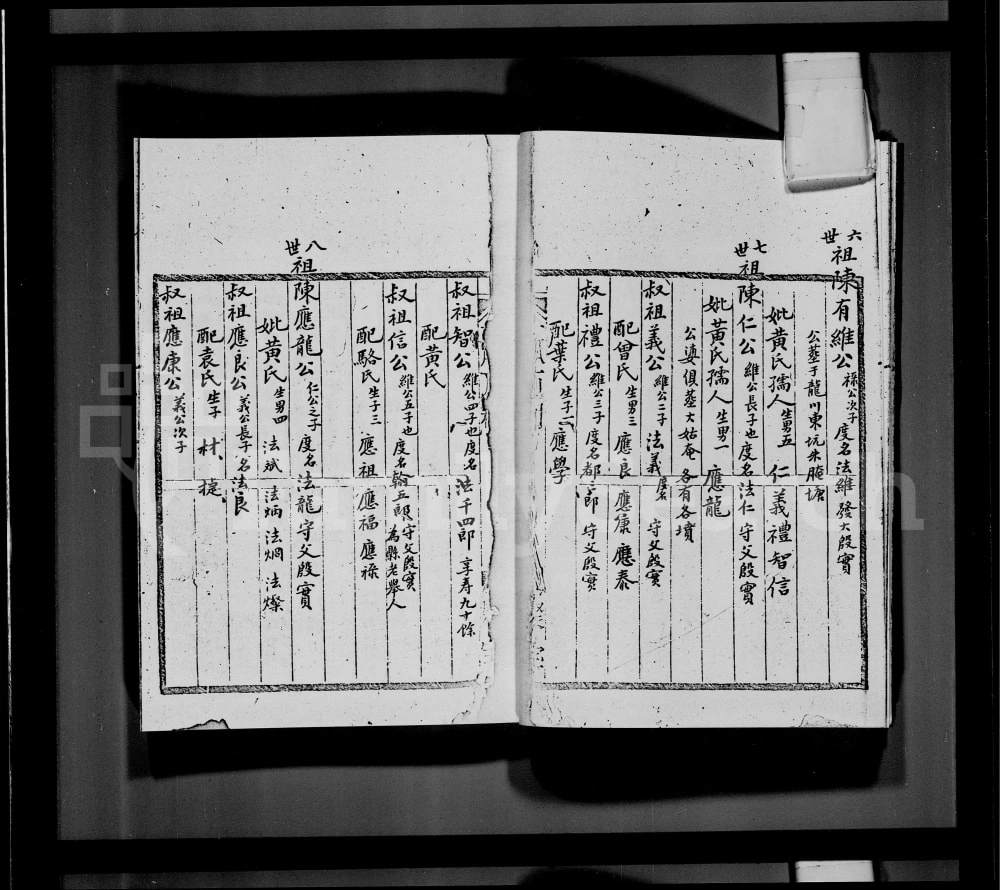 六世祖陳有維公 祿公次子 度名法維 發大殷實
公塟于龍川東坑
妣黃氏孺人 生男五 仁義禮智信
七世祖陳仁公 維公長子也 度名法仁 守父殷實
妣黃氏孺人 生男一 應龍
公俱塟大姑庵 各有各墳
叔祖義公 維公二子 法義 度名 守父殷實
配曾氏 生男三 應良 應康 應泰
叔祖禮公 維公三子 度名 郎 守父殷實
配葉氏 生子一 應學
叔祖智公 維公四子也 度名 法千四郎 享寿九十餘
配黃氏
叔祖信公 維公五子也 度名 五郎 守父殷實 為縣老舉人
配駱氏 生子三 應祖 應福 應祿
八世祖陳應龍公 仁公之子 度名法龍 守父殷實
妣黃氏 生男四 法斌 法炳 法炯 法燦
叔祖應良公 義公長子 名法良
配袁氏 生子 材 捷
叔祖應康公 義公次子